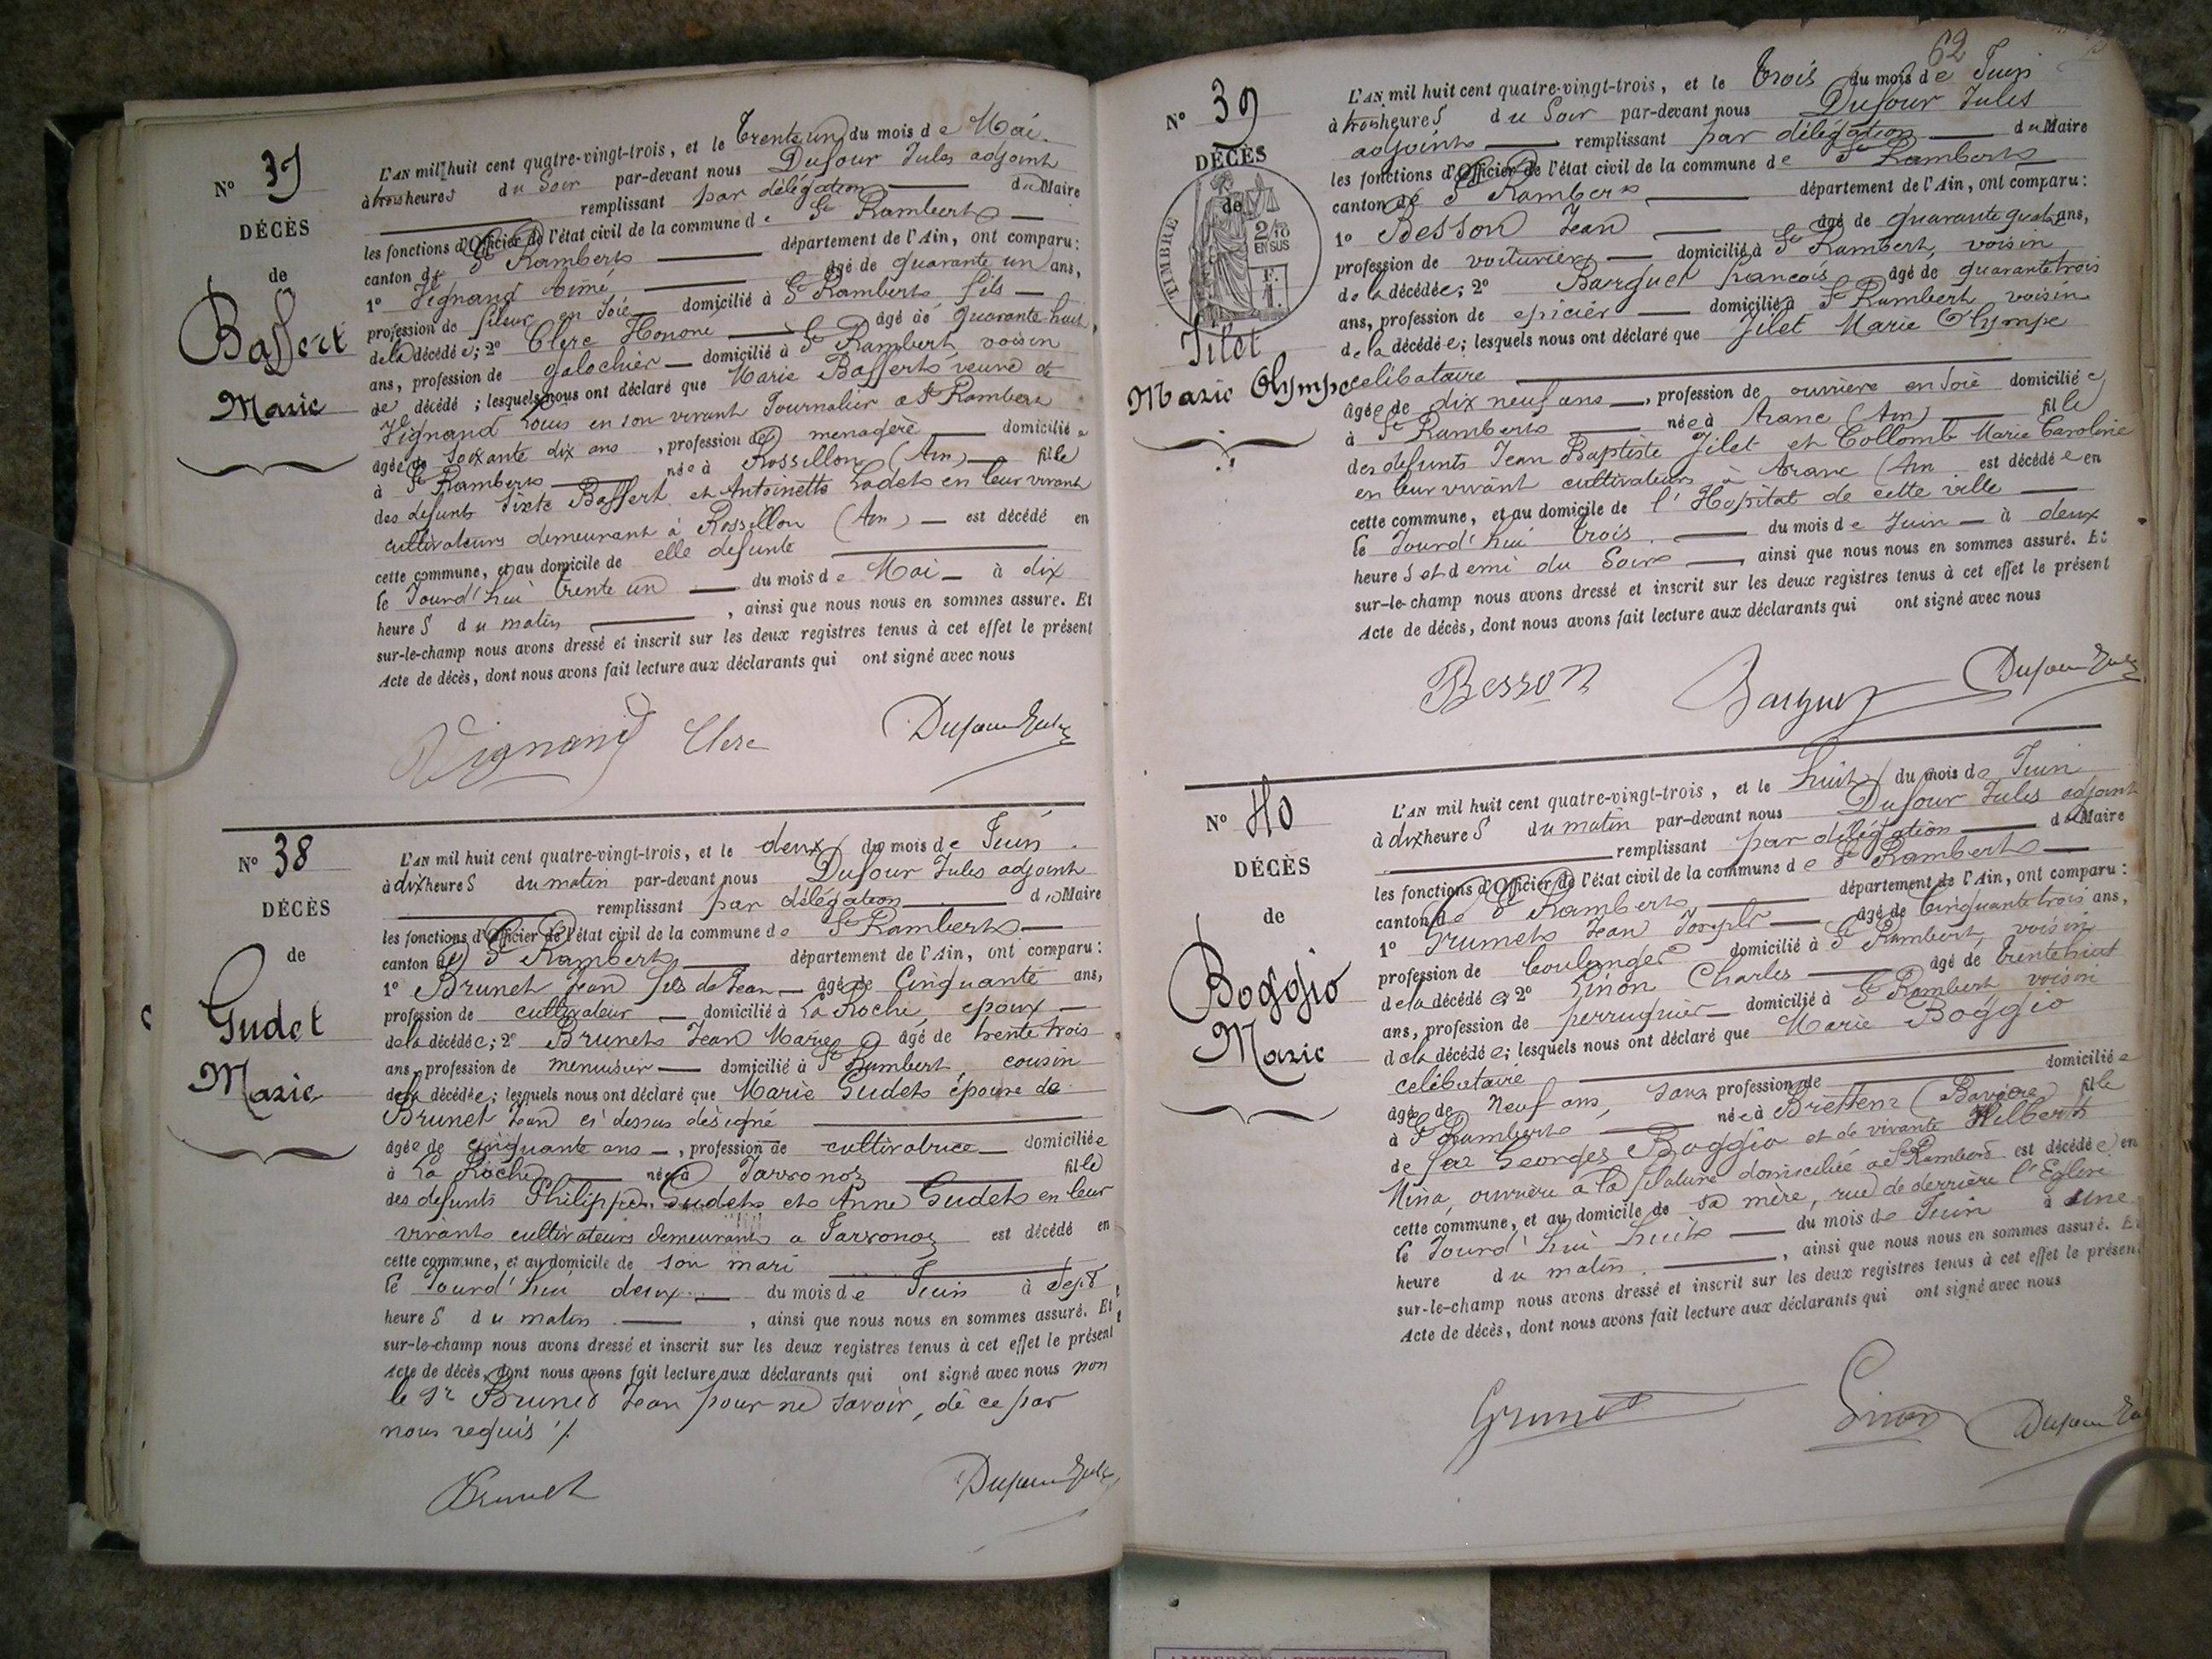 N° 37
DÉCÈS
de
Baffert
Marie
L'AN mil huit cent quatre-vingt-trois, et le Trente un du mois de Mai
à trois heures du Soir par-devant nous Dufour Jules adjoint
remplissant par délégation du Maire
les fonctions d'Officier de l'état civil de la commune de St Rambert
canton de St Rambert département de l'Ain, ont comparu:
1° Vignand Aimé âgé de quarante un ans,
profession de fileur en Soie domicilié à St Rambert fils
de la décédée; 2° Clerc Honoré âgé de quarante huit
ans, profession de galochier domicilié à St Rambert, voisin
de décédé; lesquels nous ont déclaré que Marie Baffert veuve de
Vignand Louis en son vivant Journalier à St Rambert
âgée de soixante dix ans, profession de menagère domiciliée
à St Rambert née à Rossillon (Ain) fille
des defunts Sixte Baffert et Antoinette Ladet en leur vivant
cultivateurs demeurant à Rossillon (Ain) est décédé en
cette commune, et au domicile de elle defunte
le Jourd'hui trente un du mois de Mai à dix
heures du matin, ainsi que nous nous en sommes assuré. Et
sur-le-champ nous avons dressé et inscrit sur les deux registres tenus à cet effet le présent
Acte de décès, dont nous avons fait lecture aux déclarants qui ont signé avec nous
Vignand Clerc Dufour Jules
N° 38
DÉCÈS
de
Gudet
Marie
L'AN mil huit cent quatre-vingt-trois, et le deux du mois de Juin
à dix heures du matin par-devant nous Dufour Jules adjoint
remplissant par délégation du Maire
les fonctions d'Officier de l'état civil de la commune de St Rambert
canton de St Rambert département de l'Ain, ont comparu:
1° Brunet Jean fils de Jean âgé de Cinquante ans,
profession de cultivateur domicilié à La Roche, époux
de la décédée; 2° Brunet Jean Marie âgé de trente trois
ans, profession de menuisier domicilié à St Rambert, cousin
de la décédée; lesquels nous ont déclaré que Marie Gudet épouse de
Brunet Jean ci dessus désigné
âgée de cinquante ans, profession de cultivatrice domiciliée
à La Roche née à fille
des defunts Philippe Gudet et Anne Gudet en leur
vivants cultivateurs demeurants a est décédé en
cette commune, et au domicile de son mari
le Jourd'hui deux du mois de Juin à Sept
heures du matin, ainsi que nous nous en sommes assuré. Et
sur-le-champ nous avons dressé et inscrit sur les deux registres tenus à cet effet le présent
Acte de décès, dont nous avons fait lecture aux déclarants qui ont signé avec nous non
le Sr Brunet Jean pour ne savoir, de ce par
nous requis ./.
Brunet Dufour Jules
62
N° 39
DÉCÈS
de
TIMBRE
2/10
EN SUS
F.
1.
Jilet
Marie Olympe
L'AN mil huit cent quatre-vingt-trois, et le trois du mois de Juin
à trois heures du Soir par-devant nous Dufour Jules
adjoint remplissant par délégation du Maire
les fonctions d'Officier de l'état civil de la commune de St Rambert
canton de St Rambert département de l'Ain, ont comparu:
1° Besson Jean âgé de quarante quatre ans,
profession de voiturier domicilié à St Rambert, voisin
de la décédée; 2° Barquet francois âgé de quarante trois
ans, profession de epicier domicilié à St Rambert voisin
de la décédée; lesquels nous ont déclaré que Jilet Marie Olympe
celibataire
âgée de dix neuf ans, profession de ouvrière en Soie domiciliée
à St Rambert née à Aranc (Ain) fille
des defunts Jean Baptiste Jilet et Collomb Marie Caroline
en leur vivant cultivateurs à Aranc (Ain est décédée en
cette commune, et au domicile de l'Hopital de cette ville
le Jourd'hui trois du mois de Juin à deux
heures et demi du Soir, ainsi que nous nous en sommes assuré. Et
sur-le-champ nous avons dressé et inscrit sur les deux registres tenus à cet effet le présent
Acte de décès, dont nous avons fait lecture aux déclarants qui ont signé avec nous
Besson Barquet Dufour Jules
N° 40
DÉCÈS
de
Boggio
Marie
L'AN mil huit cent quatre-vingt-trois, et le huit du mois de Juin
à dix heures du matin par-devant nous Dufour Jules adjoint
remplissant par délégation du Maire
les fonctions d'Officier de l'état civil de la commune de St Rambert
canton de St Rambert département de l'Ain, ont comparu:
1° Grumet Jean Joseph âgé de Cinquante trois ans,
profession de boulanger domicilié à St Rambert, voisin
de la décédée 2° Sinon Charles âgé de trente huit
ans, profession de perruquier domicilié à St Rambert voisin
de la décédée; lesquels nous ont déclaré que Marie Boggio
celibataire domiciliée
âgée de Neuf ans, sans profession de
à St Rambert née à Bretten (Bavière) fille
de feu Georges Boggio et de vivante Hilbert
Nina, ouvrière a la filature domiciliée a St Rambert est décédée en
cette commune, et au domicile de sa mère, rue de derrière l'Eglise
le Jourd'hui huit du mois de Juin à une
heure du matin, ainsi que nous nous en sommes assuré. Et
sur-le-champ nous avons dressé et inscrit sur les deux registres tenus à cet effet le présent
Acte de décès, dont nous avons fait lecture aux déclarants qui ont signé avec nous
Grumet Sinon Dufour Jules